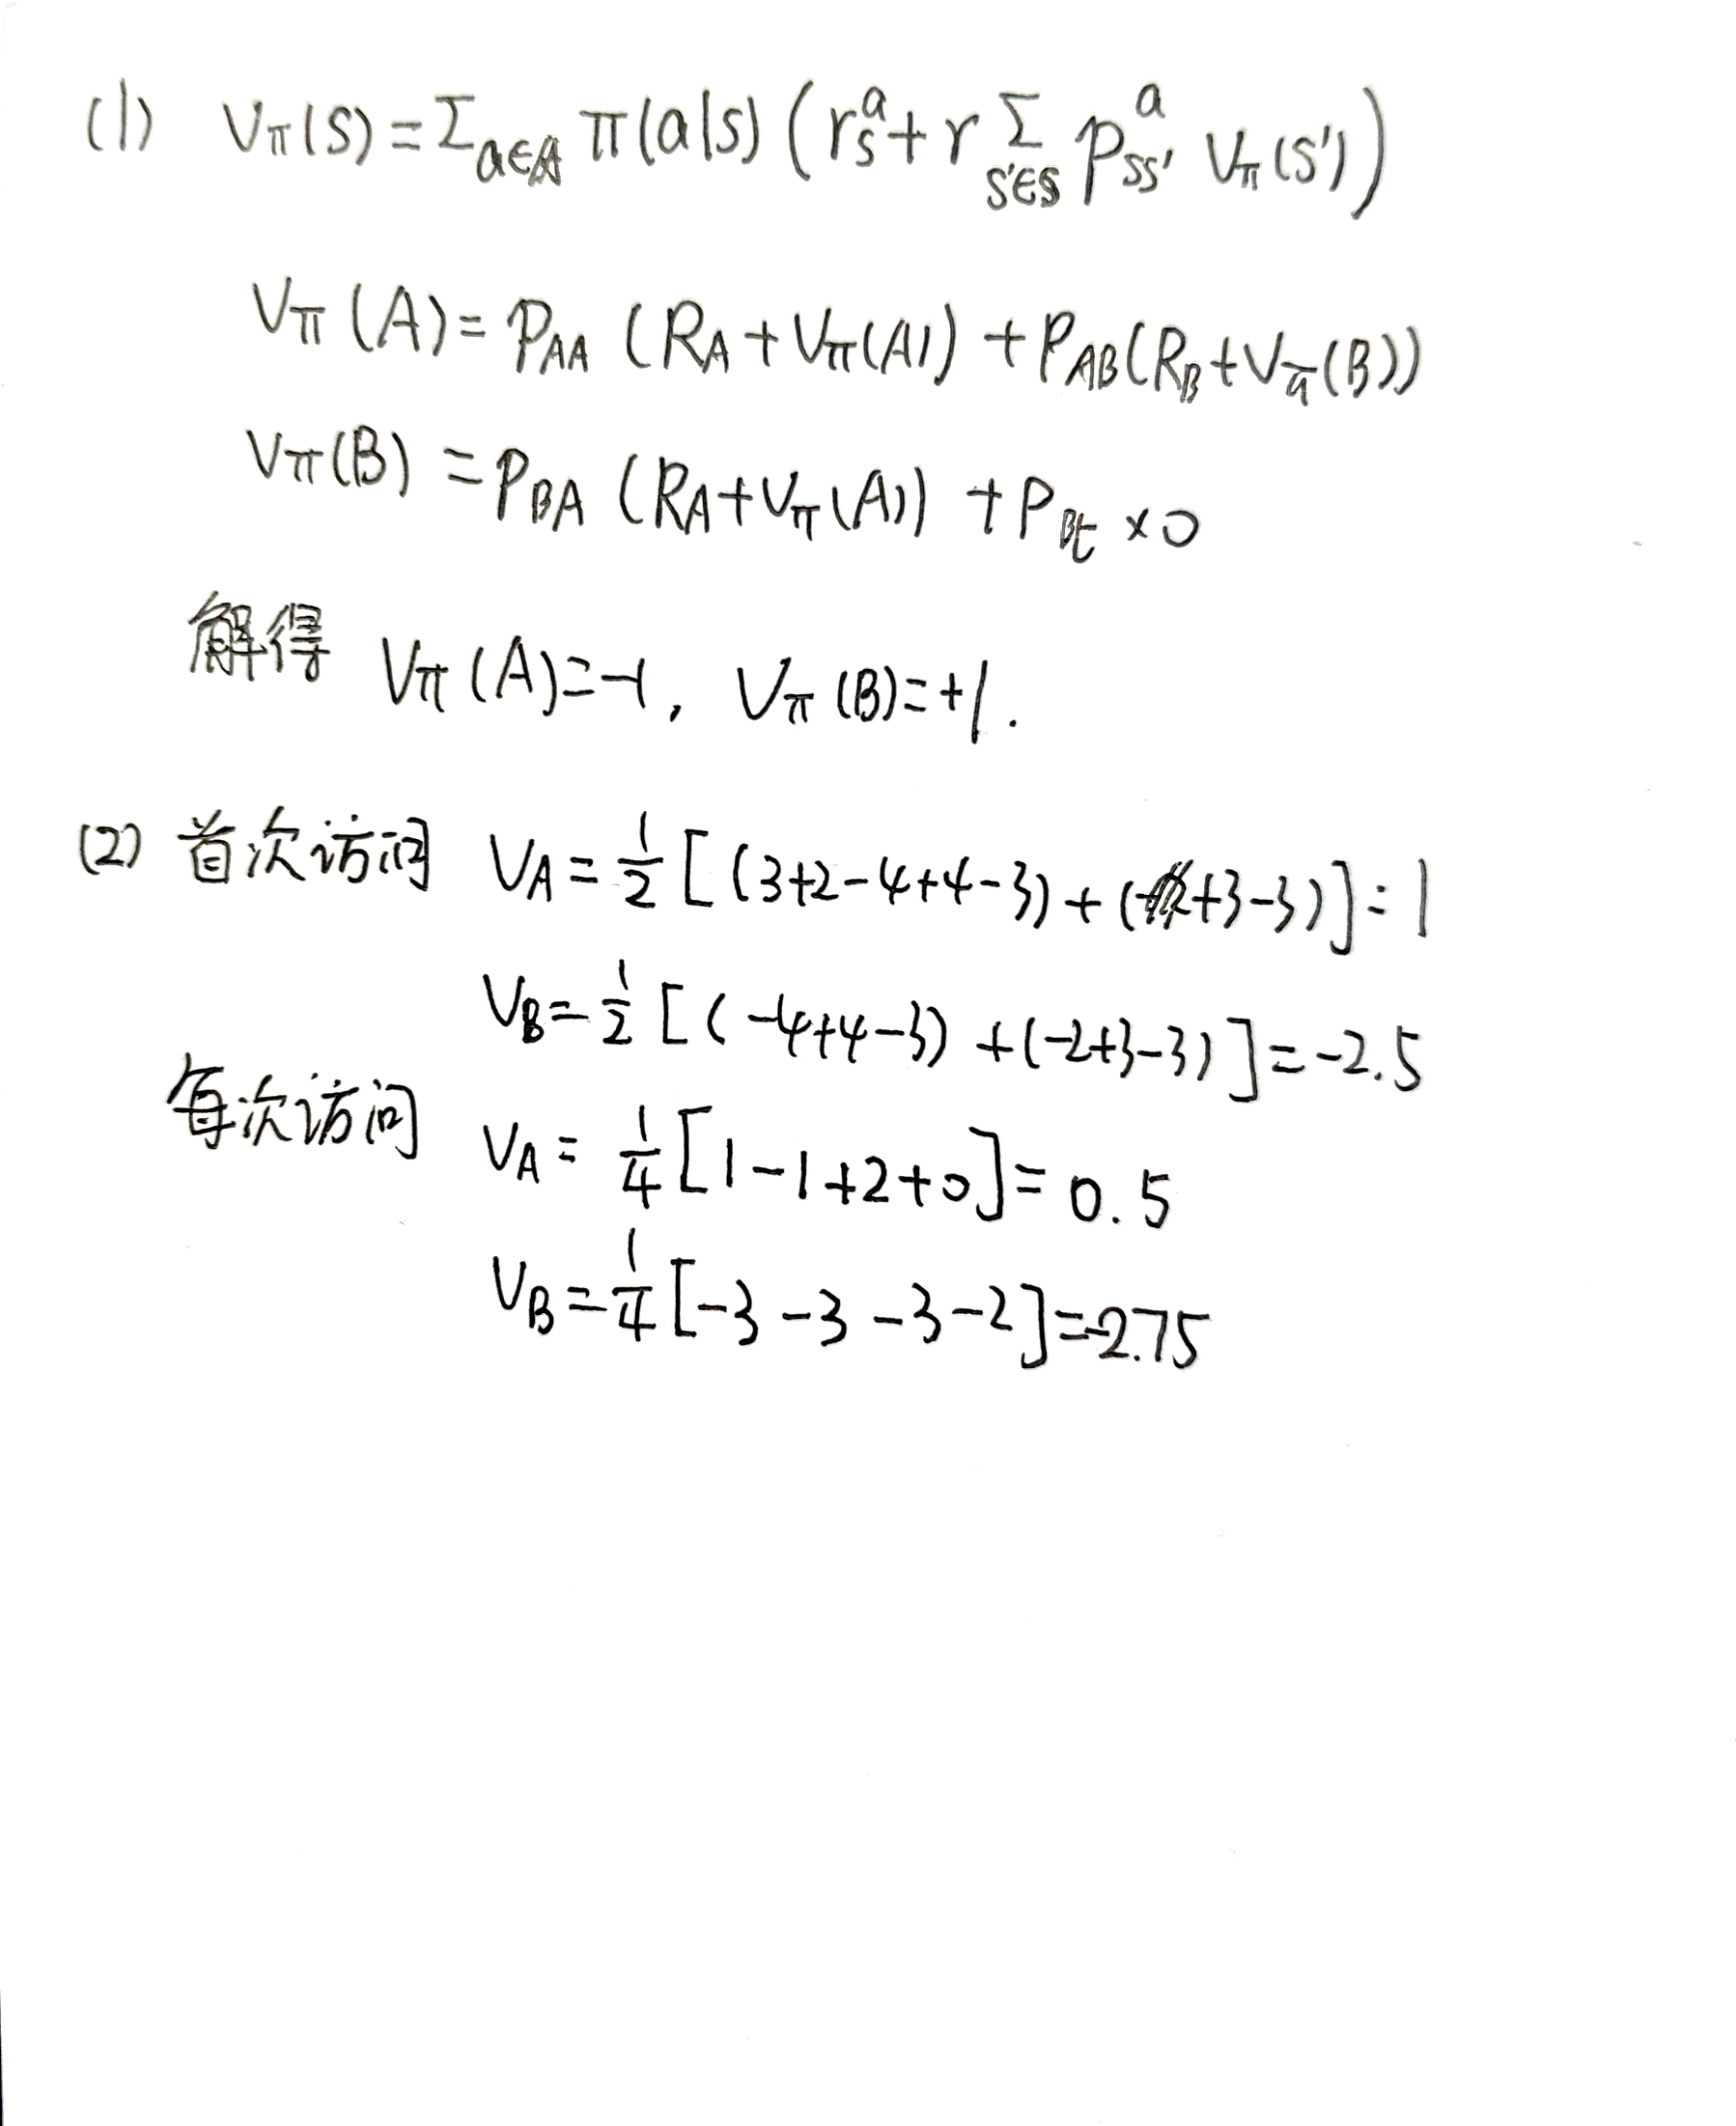 (1) Vπ(S) = Σ_{a∈A} π(a|s) (r_s^a + r Σ_{s'∈S} P_{ss'}^a Vπ(s'))
Vπ(A) = P_AA (R_A + Vπ(A)) + P_AB (R_B + Vπ(B))
Vπ(B) = P_BA (R_A + Vπ(A)) + P_Bt × 0
解得 Vπ(A) = -1, Vπ(B) = +1.
(2) 首次访问 V_A = 1/2 [(3+2-4+4-3) + (+3-3)] = 1
V_B = 1/2 [(-4+4-3) + (-2+3-3)] = -2.5
每次访问 V_A = 1/4 [1-1+2+0] = 0.5
V_B = 1/4 [-3-3-3-2] = -2.75